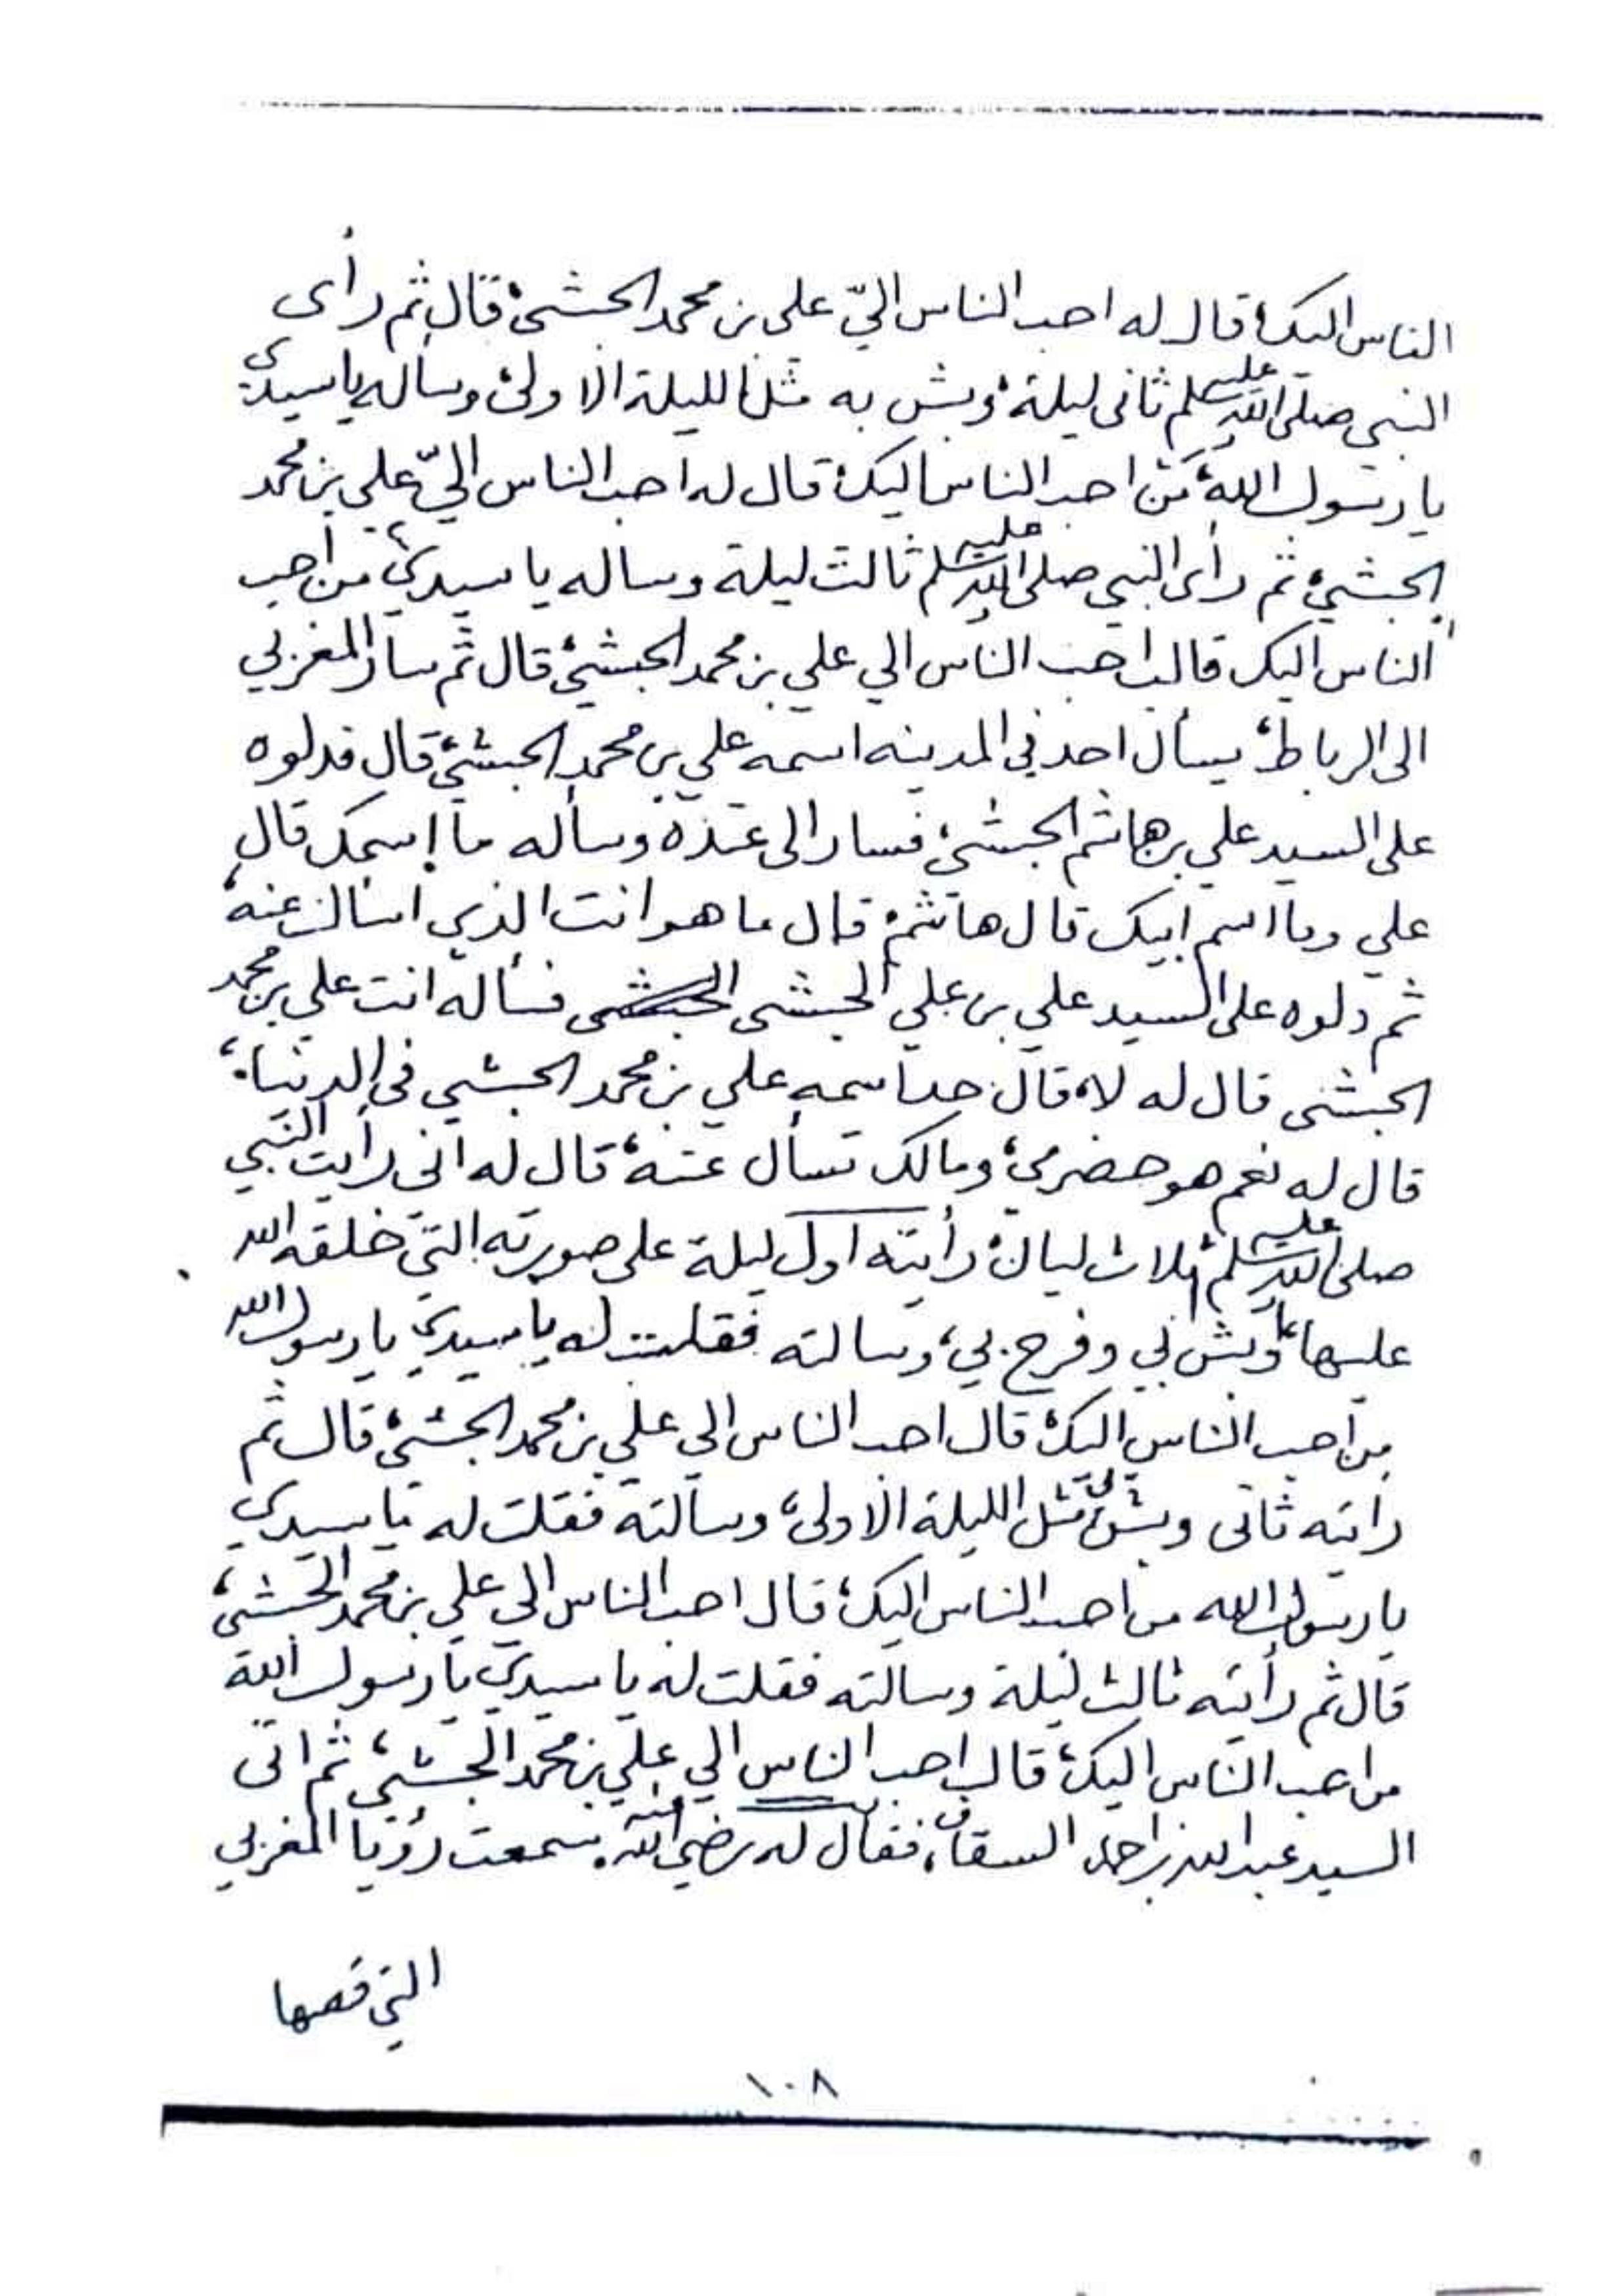 الناس اليك، قال له احب الناس اليّ علي بن محمد الحبشي، قال ثم رأى
النبي صلى الله عليه وسلم ثاني ليلة، وبش به مثل الليلة الاولى، وسأله يا سيدي
يا رسول الله، من احب الناس اليك، قال له احب الناس اليّ علي بن محمد
الحبشي، ثم رأى النبي صلى الله عليه وسلم ثالث ليلة وساله يا سيدي، من أحب
الناس اليك قال احب الناس الي علي بن محمد الحبشي، قال ثم سار المغربي
الى الرباط، يسأل احد في المدينه اسمه علي بن محمد الحبشي، قال فدلوه
على السيد علي بن هاشم الحبشي، فسار الى عنده وسأله ما إسمك قال
علي وما اسم ابيك قال هاشم، قال ما هو انت الذي اسال عنه،
ثم دلوه على السيد علي بن علي الحبشي فسأله انت علي بن محمد
الحبشي قال له لا، قال حد اسمه علي بن محمد الحبشي في الدنيا،
قال له نعم هو حضرمي، ومالك تسأل عنه، قال له اني رأيت النبي
صلى الله عليه وسلم ثلاث ليال، رأيته اول ليلة على صورته التي خلقه الله
عليها، وبش بي وفرح بي، وسالته فقلت له يا سيدي يا رسول الله
من أحب الناس اليك، قال احب الناس الي علي بن محمد الحبشي، قال ثم
رأيته ثاني وبش بي مثل الليلة الاولى، وسألته فقلت له يا سيدي
يا رسول الله من احب الناس اليك، قال احب الناس الي علي بن محمد الحبشي،
قال ثم رأيته ثالث ليلة وسالته فقلت له يا سيدي يا رسول الله
من احب الناس اليك، قال احب الناس الي علي بن محمد الحبشي، ثم اتى
السيد عبدالله بن احمد السقاف، فقال له رضي الله عنه سمعت رؤيا المغربي
التي قصها
١٠٨